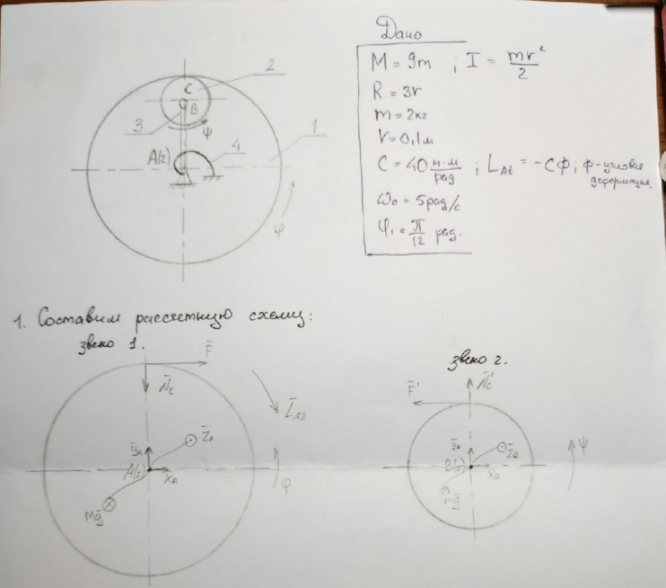 Дано
M = 9m ; I = mr²/2
R = 3r
m = 2кг
r = 0,1м
C = 40 н·м/рад ; L_Az = -CΦ ; Φ - угловая деформация.
ω₀ = 5 рад/с
φ₁ = π/12 рад.
2
C
B
3
ψ
4
1
A(z)
φ
1. Составим расчетную схему:
звено 1.
F̄
N̄c
L̄Az
ȳA
z̄A
A(z)
x̄A
φ
Mḡ
звено 2.
F̄'
N̄c'
z̄B
B(z)
ψ
mḡ